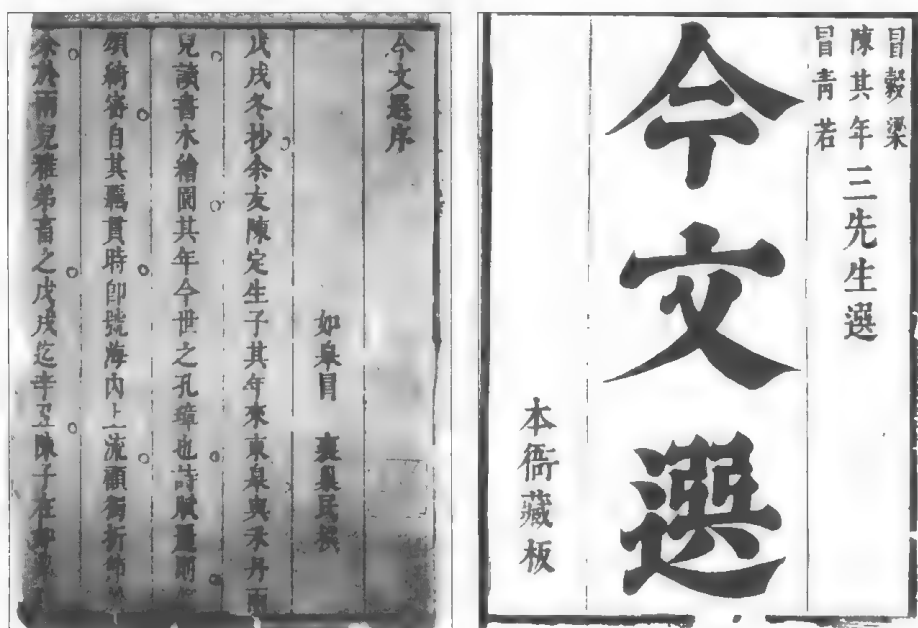 冒榖梁
陳其年三先生選
冒青若
今文選
本衙藏板
今文選序
如皋冒襄巢民撰
戊戌冬抄余友陳定生子其年來東皋與禾丹兩
兒讀書水繪園其年今世之孔璋也詩賦麗
頌綺密自其羈貫時即號海內上流顧獨折節
余於兩兒雅弟畜之戊戌迄辛丑陳子在